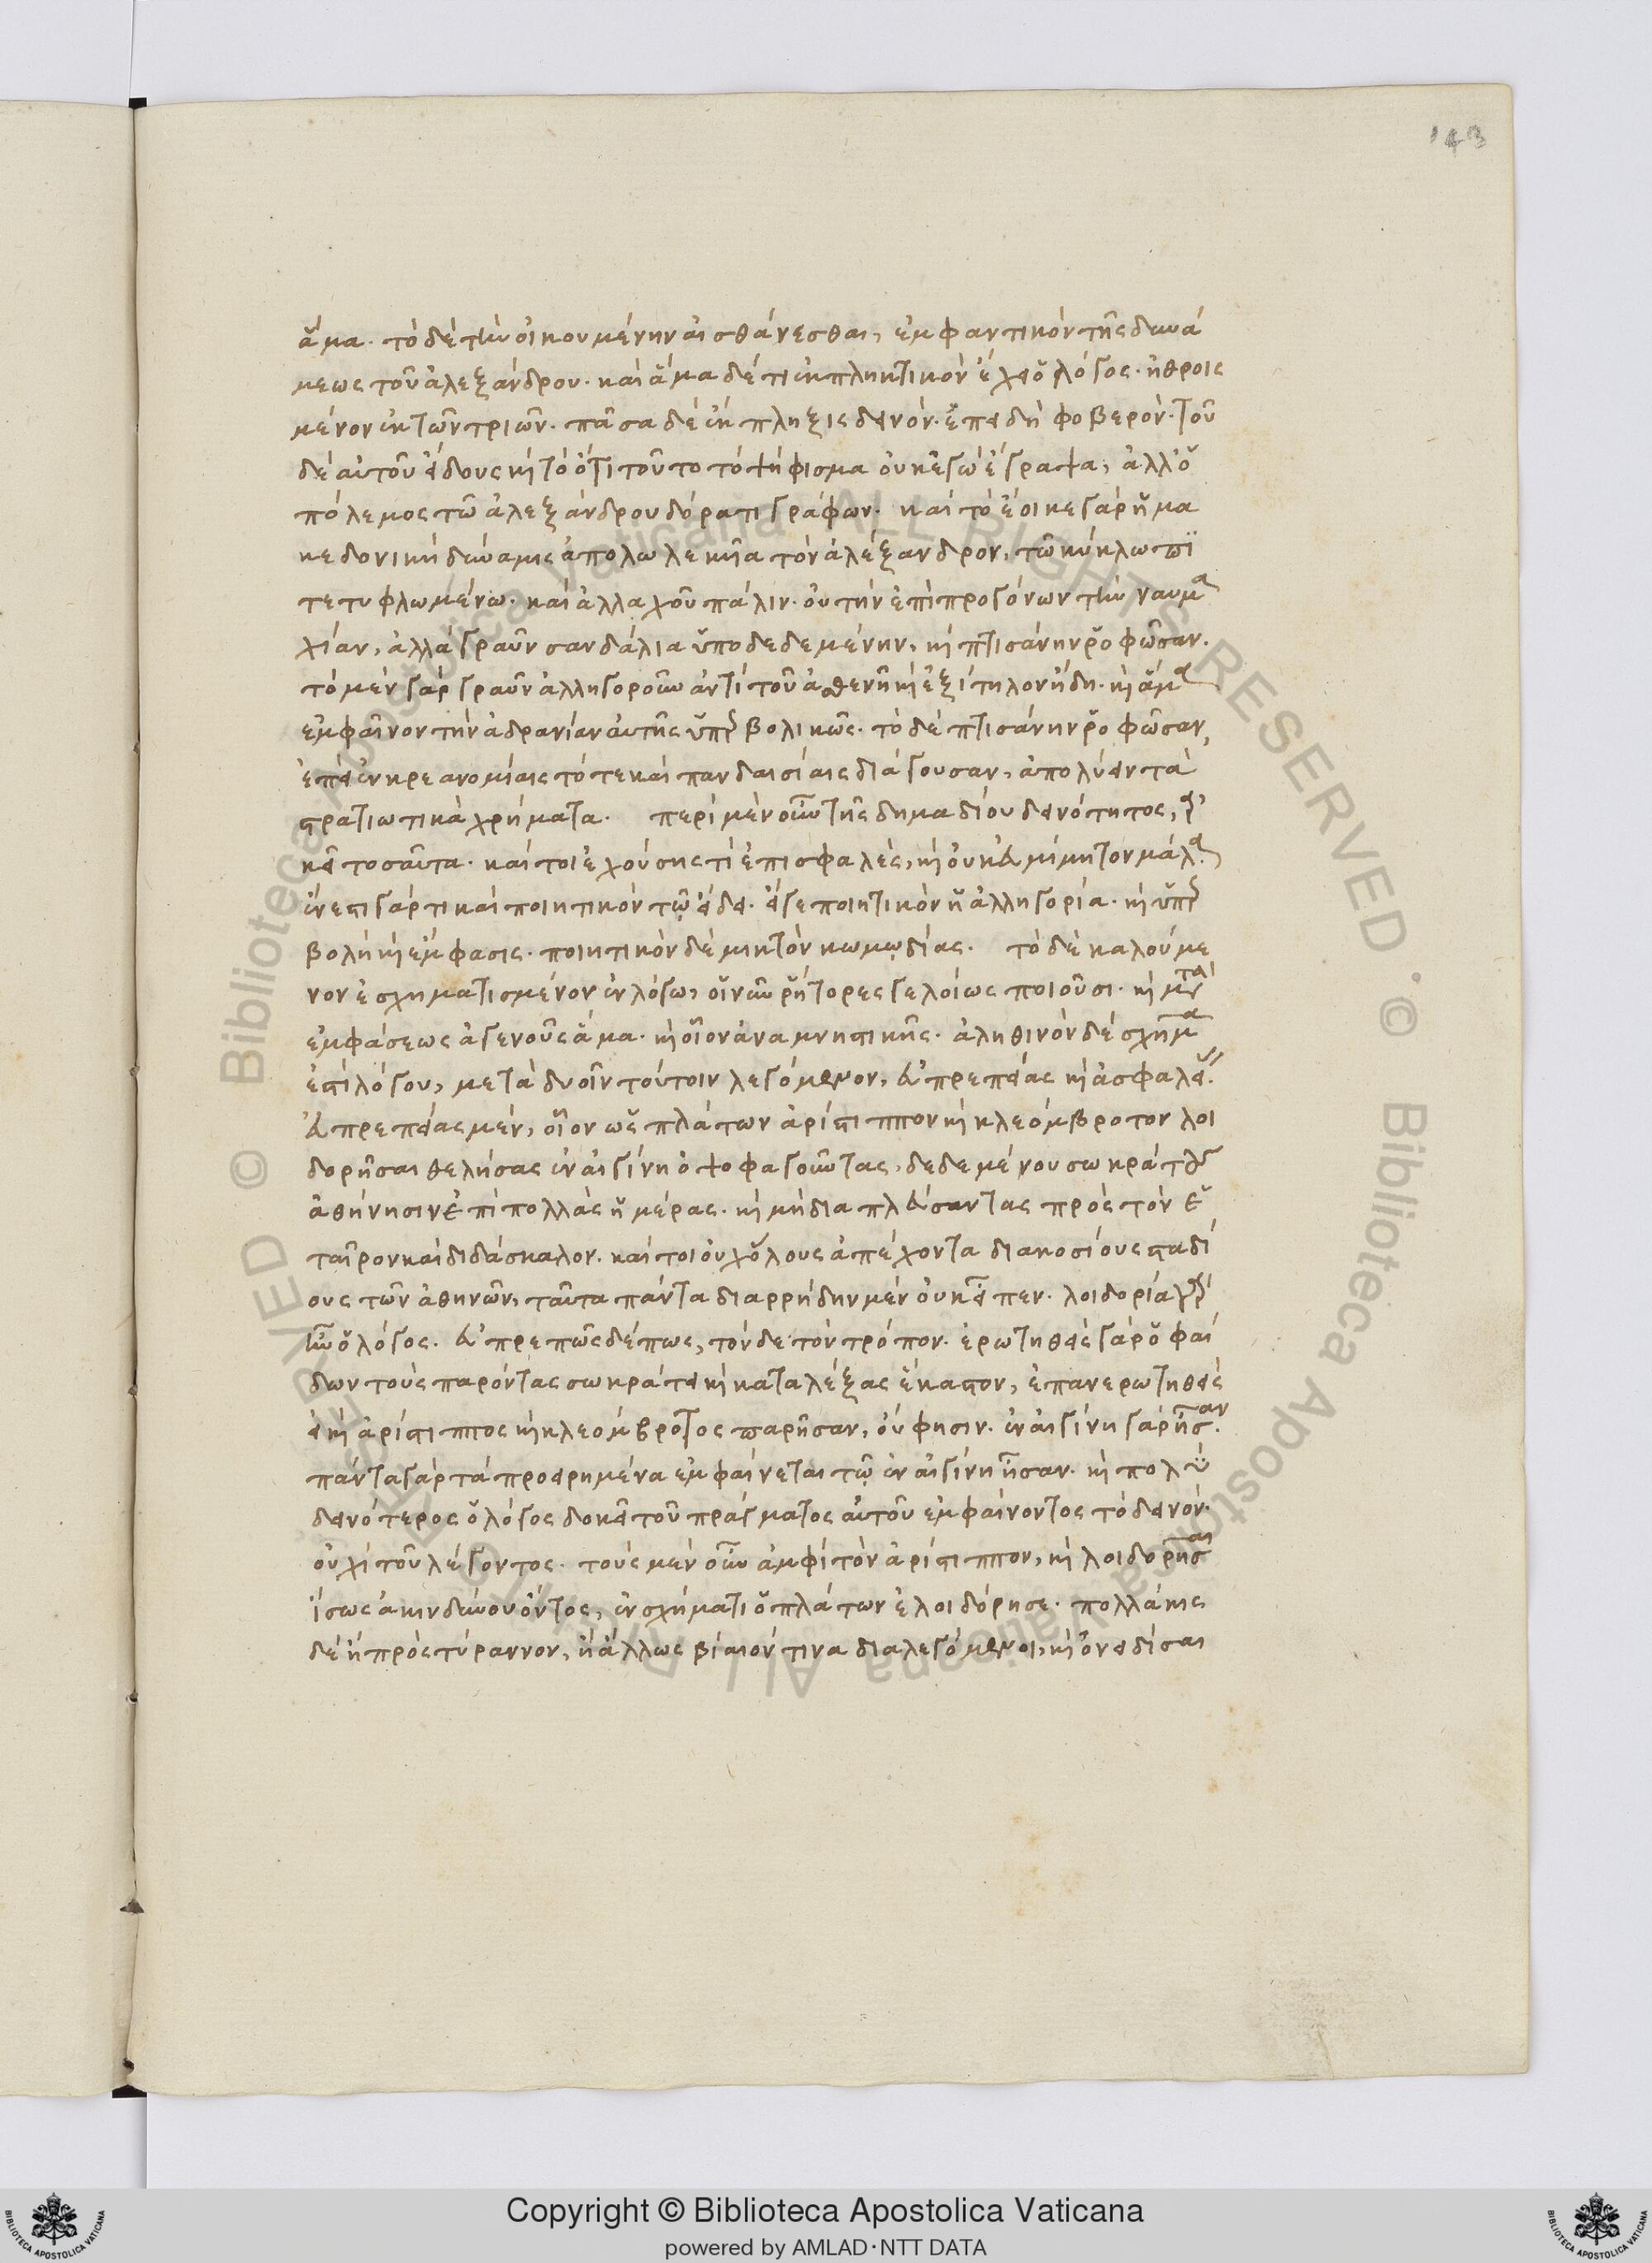 143
ἅμα. τὸ δὲ τὴν οἰκουμένην αἰσθάνεσθαι, ἐμφαντικὸν τῆς δυνά
μεως τοῦ ἀλεξάνδρου. καὶ ἅμα δέ τι ἐκπληκτικὸν ἔχει ὁ λόγος. ἠθροις
μένον ἐκ τῶν τριῶν. πᾶσα δὲ ἔκπληξις δεινόν. ἐπειδὴ φοβερόν. τοῦ
δὲ αὐτοῦ εἴδους καὶ τὸ ὅτι τοῦτο τὸ ψήφισμα οὐκ ἐγὼ ἔγραψα, ἀλλ' ὁ
πόλεμος τῶ ἀλεξάνδρου δόρατι γράφων. καὶ τὸ ἔοικε γὰρ ἡ μα
κεδονικὴ δύναμις ἀπολωλεκυῖα τὸν ἀλέξανδρον, τῶ κύκλωπι
τετυφλωμένω. καὶ ἀλλαχοῦ πάλιν. οὐ τὴν ἐπὶ προγόνων τὴν ναυμα
χίαν, ἀλλὰ γραῦν σανδάλια ὑποδεδεμένην, καὶ πτισάνην ῥοφῶσαν.
τὸ μὲν γὰρ γραῦν ἀλληγοροῦν ἀντὶ τοῦ ἀσθενῆ καὶ ἐξίτηλον ἤδη. καὶ ἅμα
ἐμφαῖνον τὴν ἀδρανίαν αὐτῆς ὑπερβολικῶς. τὸ δὲ πτισάνην ῥοφῶσαν,
ἐπεὶ ἐν κρεανομίαις τότε καὶ πανδαισίαις διάγουσαν, ἀπολύειν τὰ
στρατιωτικὰ χρήματα. περὶ μὲν οὖν τῆς δημαδίου δεινότητος, ἀρ
κεῖ τοσαῦτα. καίτοι ἐχούσης τὶ ἐπισφαλὲς, καὶ οὐκ εὐμίμητον μάλα.
ἔνεστι γάρ τι καὶ ποιητικὸν τῷ εἴδει. εἴγε ποιητικὸν ἡ ἀλληγορία. καὶ ὑπερ
βολὴ καὶ ἔμφασις. ποιητικὸν δὲ μικτὸν κωμῳδίας. τὸ δὲ καλούμε
νον ἐσχηματισμένον ἐν λόγω, οἱ νῦν ῥήτορες γελοίως ποιοῦσι. καὶ μετὰ
ἐμφάσεως ἀγενοῦς ἅμα. καὶ οἷον ἀναμνηστικῆς. ἀληθινὸν δὲ σχῆμα
ἐστὶ λόγου, μετὰ δυοῖν τούτοιν λεγόμενον, εὐπρεπείας καὶ ἀσφαλείας.
εὐπρεπείας μὲν, οἷον ὡς πλάτων ἀρίστιππον καὶ κλεόμβροτον λοι
δορῆσαι θελήσας ἐν αἰγίνη ὀψοφαγοῦντας, δεδεμένου σωκράτους
ἀθήνησιν ἐπὶ πολλὰς ἡμέρας. καὶ μὴ διαπλεύσαντας πρὸς τὸν ἑ
ταῖρον καὶ διδάσκαλον. καίτοι οὐχ ὅλους ἀπέχοντα διακοσίους σταδί
ους τῶν ἀθηνῶν, ταῦτα πάντα διαρρήδην μὲν οὐκ εἶπεν. λοιδορία γὰρ
ἦν ὁ λόγος. εὐπρεπῶς δέ πως, τόνδε τὸν τρόπον. ἐρωτηθεὶς γὰρ ὁ φαί
δων τοὺς παρόντας σωκράτει καὶ καταλέξας ἕκαστον, ἐπανερωτηθεὶς
εἰ καὶ ἀρίστιππος καὶ κλεόμβροτος παρῆσαν, οὔ φησιν. ἐν αἰγίνη γὰρ ἦσαν.
πάντα γὰρ τὰ προειρημένα ἐμφαίνεται τῷ ἐν αἰγίνη ἦσαν. καὶ πολὺ
δεινότερος ὁ λόγος δοκεῖ τοῦ πράγματος αὐτοῦ ἐμφαίνοντος τὸ δεινόν.
οὐχὶ τοῦ λέγοντος. τοὺς μὲν οὖν ἀμφὶ τὸν ἀρίστιππον, καὶ λοιδορῆσαι
ἴσως ἀκινδύνου ὄντος, ἐν σχήματι ὁ πλάτων ἐλοιδόρησε. πολλάκις
δὲ ἢ πρὸς τύραννον, ἢ ἄλλως βίαιόν τινα διαλεγόμενοι, καὶ ὀνειδίσαι
© Biblioteca Apostolica Vaticana ALL RIGHTS RESERVED · © Biblioteca Apostolica Vaticana ALL RIGHTS RESERVED
Copyright © Biblioteca Apostolica Vaticana
powered by AMLAD·NTT DATA
BIBLIOTECA APOSTOLICA VATICANA
BIBLIOTECA APOSTOLICA VATICANA